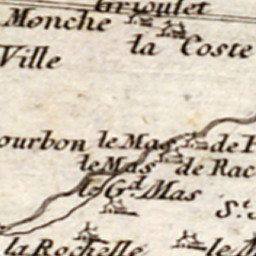 Grioulet
Monche
la Coste
Ville
ourbon le Mas de
le Mas de Rac
le Gd. Mas
St.
la Rochelle le M